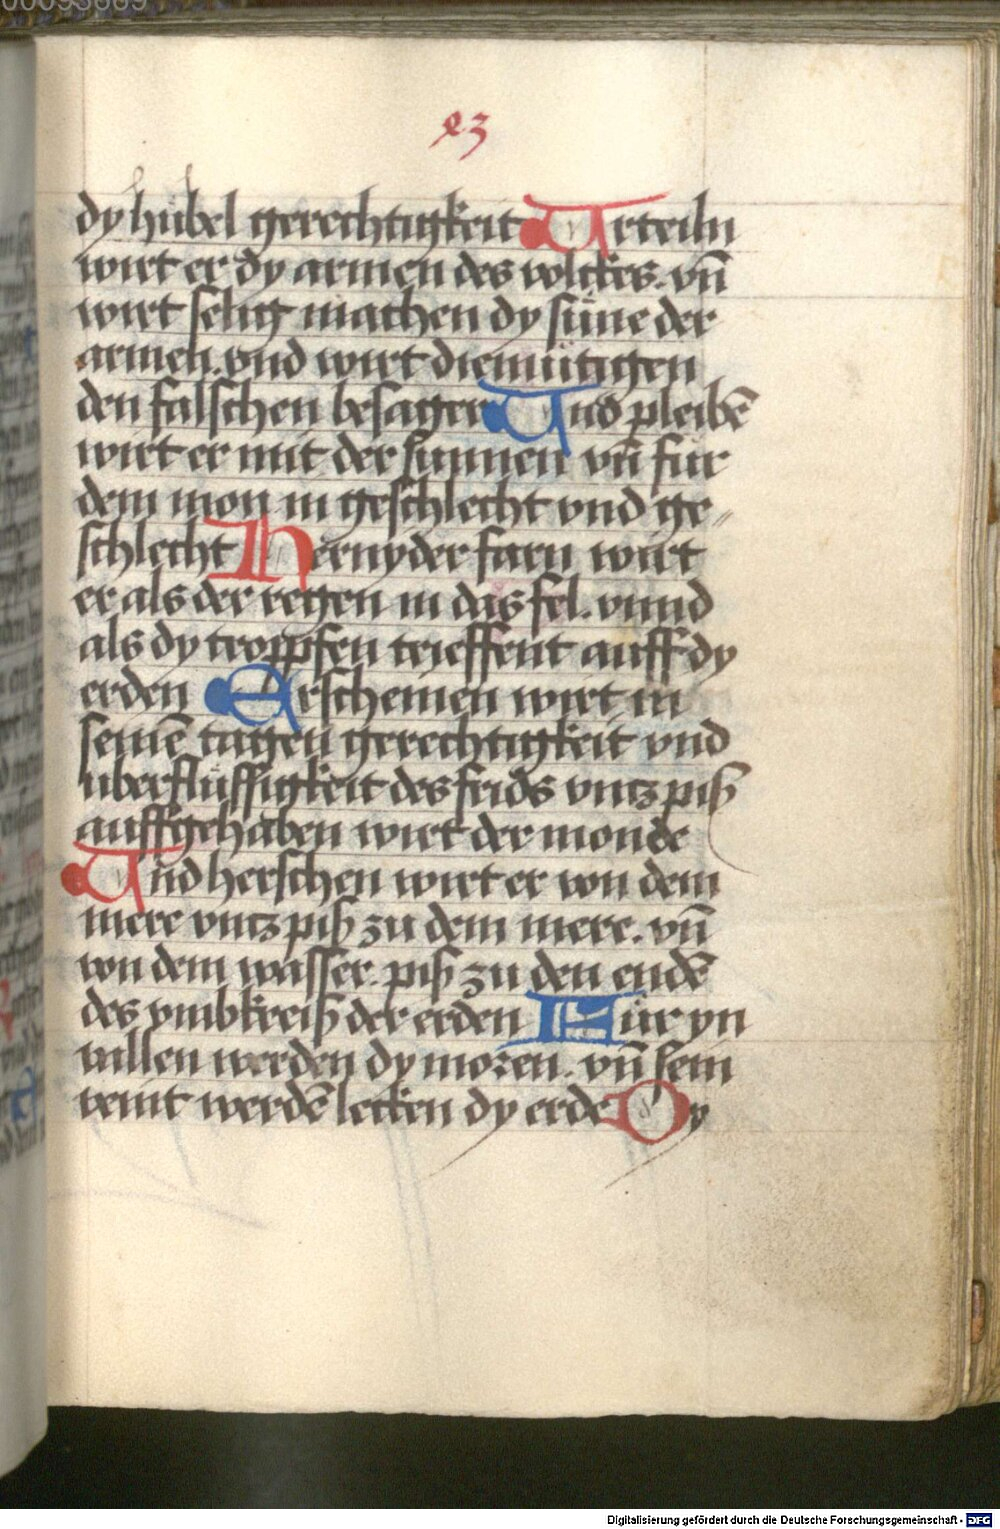 00093889
93
dy hübel gerechtigkeit Urteiln
wirt er dy armen des volckes. vn̄
wirt selig machen dy süne der
armen. vnd wirt diemütigen
den falschen besager Und pleibē
wirt er mit der sunnen vn̄ für
dem mon in geschlecht vnd ge⸗
schlecht Hernyder farn wirt
er als der regen in das fel. vnnd
als dy troppfen trieffent auff dy
erden Erscheinen wirt in
seinē tagen gerechtigkeit vnd
überflüssigkeit des frids vntz piß
auffgehaben wirt der monde
Und herschen wirt er von dem
mere vntz piß zu dem mere. vn̄
von dem wasser. piß zu den endē
des vmbkreiß der erden Für yn
vallen werden dy moren. vn̄ sein
veint werdē lecken dy erde Dy
Digitalisierung gefördert durch die Deutsche Forschungsgemeinschaft - DFG